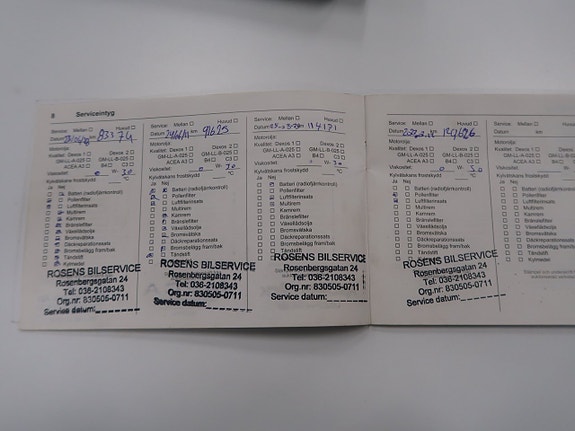 8 Serviceintyg
Service: Mellan ☐ Huvud ☐
Datum km 83374
Motorolja:
Kvalitet: Dexos 1 ☐ Dexos 2 ☐
GM-LL-A-025 ☐ GM-LL-B-025 ☐
ACEA A3 ☐ B4 ☐ C3 ☐
Viskositet: 0 W- 30
Kylvätskans fryskydd °C
Ja Nej
Batteri (radiofjärrkontroll)
Pollenfilter
Luftfilterinsats
Multirem
Kamrem
Bränslefilter
Växellådsolja
Bromsvätska
Däckreparationssats
Bromsbelägg fram/bak
Tändstift
Kylmedel
ROSENS BILSERVICE
Rosenbergsgatan 24
Tel: 036-2108343
Org.nr: 830505-0711
Service datum:
Service: Mellan ☐ Huvud ☐
Datum km 91625
Motorolja:
Kvalitet: Dexos 1 ☐ Dexos 2 ☐
GM-LL-A-025 ☐ GM-LL-B-025 ☐
ACEA A3 ☐ B4 ☐ C3 ☐
Viskositet: 0 W- 30
Kylvätskans fryskydd °C
Ja Nej
Batteri (radiofjärrkontroll)
Pollenfilter
Luftfilterinsats
Multirem
Kamrem
Bränslefilter
Växellådsolja
Bromsvätska
Däckreparationssats
Bromsbelägg fram/bak
Tändstift
ROSENS BILSERVICE
Rosenbergsgatan 24
Tel: 036-2108343
Org.nr: 830505-0711
Service datum:
Service: Mellan ☐ Huvud ☐
Datum 114171
Motorolja:
Kvalitet: Dexos 1 ☐ Dexos 2 ☐
GM-LL-A-025 ☐ GM-LL-B-025 ☐
ACEA A3 ☐ B4 ☐ C3 ☐
Viskositet: 0 W- 30
Kylvätskans fryskydd °C
Ja Nej
Batteri (radiofjärrkontroll)
Pollenfilter
Luftfilterinsats
Multirem
Kamrem
Bränslefilter
Växellådsolja
Bromsvätska
Däckreparationssats
Bromsbelägg fram/bak
Tändstift
ROSENS BILSERVICE
Rosenbergsgatan 24
Tel: 036-2108343
Org.nr: 830505-0711
Service datum:
Service: Mellan ☐ Huvud ☐
Datum
Motorolja:
Kvalitet: Dexos 1 ☐ Dexos 2 ☐
GM-LL-A-025 ☐ GM-LL-B-025 ☐
ACEA A3 ☐ B4 ☐ C3 ☐
Viskositet: 0 W-
Kylvätskans fryskydd °C
Ja Nej
Batteri (radiofjärrkontroll)
Pollenfilter
Luftfilterinsats
Multirem
Kamrem
Bränslefilter
Växellådsolja
Bromsvätska
Däckreparationssats
Bromsbelägg fram/bak
Tändstift
ROSENS BILSERVICE
Rosenbergsgatan 24
Tel: 036-2108343
Org.nr: 830505-0711
Service datum:
Service: Mellan ☐
Datum km
Motorolja:
Kvalitet: Dexos 1 ☐
GM-LL-A-025 ☐
ACEA A3 ☐
Viskositet:
Kylvätskans fryskydd
Ja Nej
Batteri (radiofjärrkontroll)
Pollenfilter
Luftfilterinsats
Multirem
Kamrem
Bränslefilter
Växellådsolja
Bromsvätska
Däckreparationssats
Bromsbelägg fram/bak
Tändstift
Kylmedel